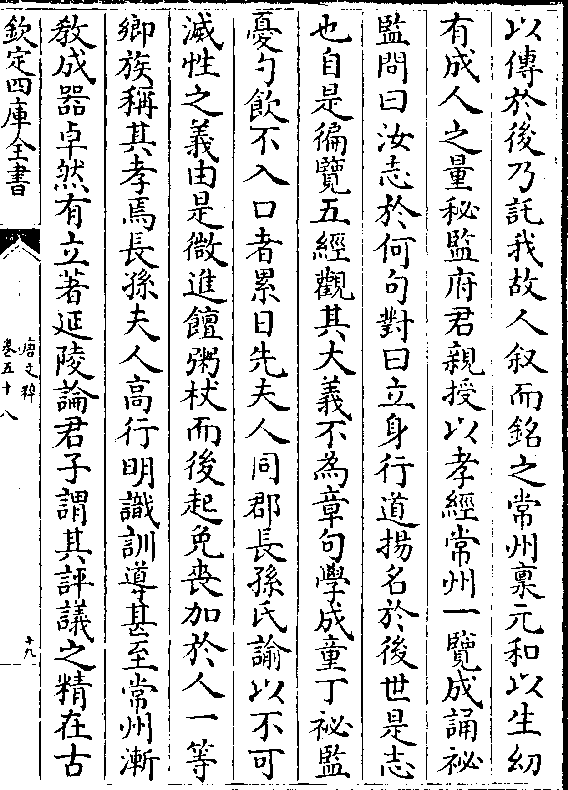 以傳於後乃託我故人叙而銘之常州禀元和以生幼
有成人之量秘監府君親授以孝經常州一覽成誦祕
監問曰汝志於何句對曰立身行道揚名於後世是志
也自是徧覽五經觀其大義不為章句學成童丁祕監
憂勺飲不入口者累日先夫人同郡長孫氏諭以不可
滅性之義由是微進饘粥杖而後起免喪加於人一等
鄉族稱其孝焉長孫夫人高行明識訓導甚至常州漸
教成器卓然有立著延陵論君子謂其評議之精在古
欽定四庫全書
唐文粹
卷五十八
十九